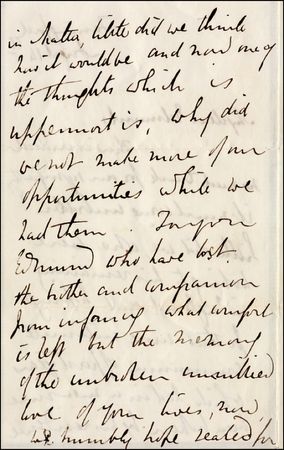 in Malta, little did we think
how it would be and now one of
the thoughts which is
uppermost is, why did
we not make more of our
opportunities while we
had them. For you
Edmund who have lost
the brother and companion
from infancy what comfort
is left but the memory
of the unbroken unsullied
love of your lives, now,
we humbly hope sealed for